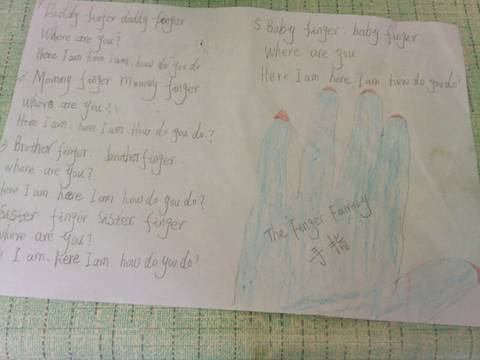 1 Daddy finger daddy finger.
Where are you?
Here I am here I am. how do you do
2. Mommy finger Mommy finger.
Where are you?
Here I am. here I am. How do you do.?
3. Brother finger. brother finger.
where are you?
Here I am here I am how do you do?
Sister finger Sister finger
where are you?
I am. here I am. how do you do?
5. Baby finger. baby finger
Where are you
Here I am here I am how do you do?
The Finger Family
手指